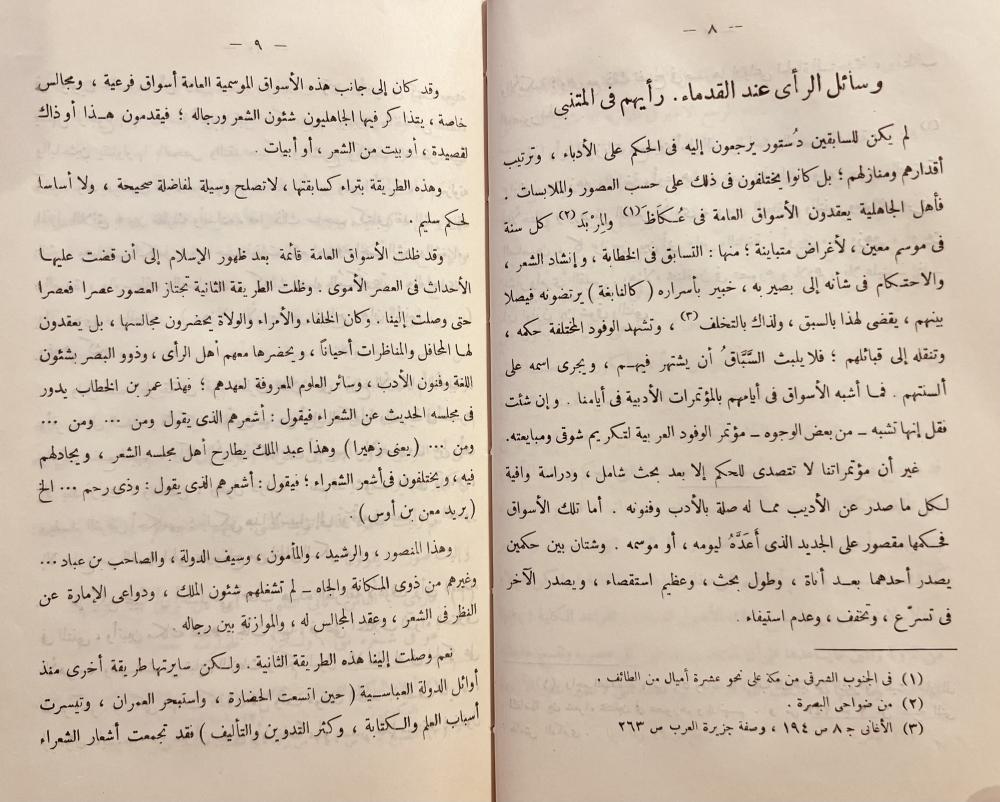 — ٨ —
وسائل الرأى عند القدماء . رأيهم فى المتنبى
لم يكن للسابقين دُستور يرجعون إليه فى الحكم على الأدباء ، وترتيب
أقدارهم ومنازلهم ؛ بل كانوا يختلفون فى ذلك على حسب العصور والملابسات .
فأهل الجاهلية يعقدون الأسواق العامة فى عُكَاظَ (١) والمِرْبَد (٢) كل سنة
فى موسم معين ، لأغراض متباينة ؛ منها : التسابق فى الخطابة ، وإنشاد الشعر ،
والاحتكام فى شأنه إلى بصير به ، خبير بأسراره ( كالنابغة ) يرتضونه فيصلا
بينهم ، يقضى لهذا بالسبق ، ولذاك بالتخلف (٣) ، وتشهد الوفود المختلفة حكمه ،
وتنقله إلى قبائلهم ؛ فلا يلبث السَّبَّاقُ أن يشتهر فيهم ، ويجرى اسمه على
ألسنتهم . فما أشبه الأسواق فى أيامهم بالمؤتمرات الأدبية فى أيامنا . وإن شئت
فقل إنها تشبه – من بعض الوجوه – مؤتمر الوفود العربية لتكريم شوقى ومبايعته.
غير أن مؤتمراتنا لا تتصدى للحكم إلا بعد بحث شامل ، ودراسة وافية
لكل ما صدر عن الأديب مما له صلة بالأدب وفنونه . أما تلك الأسواق
فحكمها مقصور على الجديد الذى أَعَدَّهُ ليومه ، أو موسمه . وشتان بين حكمين
يصدر أحدهما بعد أناة ، وطول بحث ، وعظيم استقصاء ، ويصدر الآخر
فى تسرّع ، وتخفف ، وعدم استيفاء .
(١) فى الجنوب الشرقى من مكة على نحو عشرة أميال من الطائف .
(٢) من ضواحى البصرة .
(٣) الأغانى ج ٨ ص ١٩٤ ، وصفة جزيرة العرب ص ٢٦٣
— ٩ —
وقد كان إلى جانب هذه الأسواق الموسمية العامة أسواق فرعية ، ومجالس
خاصة ، يتذاكر فيها الجاهليون شئون الشعر ورجاله ؛ فيقدمون هذا أو ذاك
لقصيدة ، أو بيت من الشعر ، أو أبيات .
وهذه الطريقة بتراء كسابقتها ، لا تصلح وسيلة لمفاضلة صحيحة ، ولا أساسا
لحكم سليم .
وقد ظلت الأسواق العامة قائمة بعد ظهور الإسلام إلى أن قضت عليها
الأحداث فى العصر الأموى . وظلت الطريقة الثانية تجتاز العصور عصرا فعصرا
حتى وصلت إلينا . وكان الخلفاء والأمراء والولاة يحضرون مجالسها ، بل يعقدون
لها المحافل والمناظرات أحياناً ، ويحضرها معهم أهل الرأى ، وذوو البصر بشئون
اللغة وفنون الأدب ، وسائر العلوم المعروفة لعهدهم ؛ فهذا عمر بن الخطاب يدور
فى مجلسه الحديث عن الشعراء فيقول : أشعرهم الذى يقول ومن ... ومن ...
ومن ... ( يعنى زهيرا ) وهذا عبد الملك يطارح أهل مجلسه الشعر ، ويجادلهم
فيه ، ويختلفون فى أشعر الشعراء ؛ فيقول : أشعرهم الذى يقول : وذى رحم ... الخ
( يريد معن بن أوس ) .
وهذا المنصور ، والرشيد ، والمأمون ، وسيف الدولة ، والصاحب بن عباد ...
وغيرهم من ذوى المكانة والجاه – لم تشغلهم شئون الملك ، ودواعى الإمارة عن
النظر فى الشعر ، وعقد المجالس له ، والموازنة بين رجاله .
نعم وصلت إلينا هذه الطريقة الثانية . ولكن سايرتها طريقة أخرى منذ
أوائل الدولة العباسية ( حين اتسعت الحضارة ، واستبحر العمران ، وتيسرت
أسباب العلم والكتابة ، وكثر التدوين والتأليف ) فقد تجمعت أشعار الشعراء